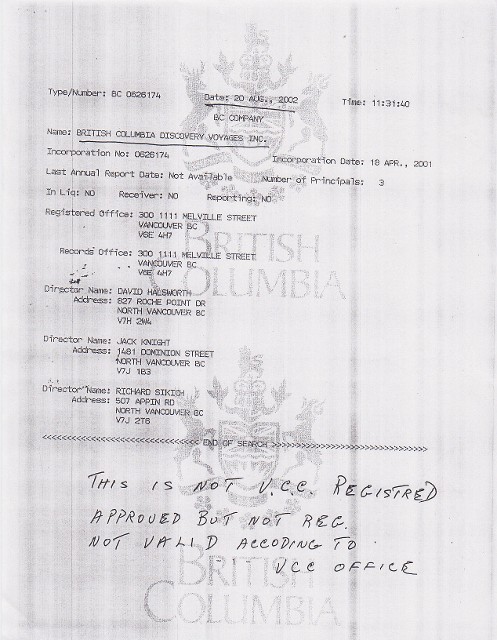 Type/Number: BC 0626174 Date: 20 AUG., 2002 Time: 11:31:40
BC COMPANY
Name: BRITISH COLUMBIA DISCOVERY VOYAGES INC.
Incorporation No: 0626174 Incorporation Date: 18 APR., 2001
Last Annual Report Date: Not Available Number of Principals: 3
In Liq: NO Receiver: NO Reporting: NO
Registered Office: 300 1111 MELVILLE STREET
VANCOUVER BC
V6E 4H7
Records Office: 300 1111 MELVILLE STREET
VANCOUVER BC
V6E 4H7
BRITISH
COLUMBIA
Director Name: DAVID HALSWORTH
Address: 827 ROCHE POINT DR
NORTH VANCOUVER BC
V7H 2W4
Director Name: JACK KNIGHT
Address: 1481 DOMINION STREET
NORTH VANCOUVER BC
V7J 1B3
Director Name: RICHARD SIKICH
Address: 507 APPIN RD
NORTH VANCOUVER BC
V7J 2T6
<<<<<<<<<<<<<<<<<<<<<<<<<<<<<< END OF SEARCH >>>>>>>>>>>>>>>>>>>>>>>>>>>>>>
THIS IS NOT V.C.C. REGISTRED
APPROVED BUT NOT REG.
NOT VALID ACCODING TO
VCC OFFICE
BRITISH
COLUMBIA